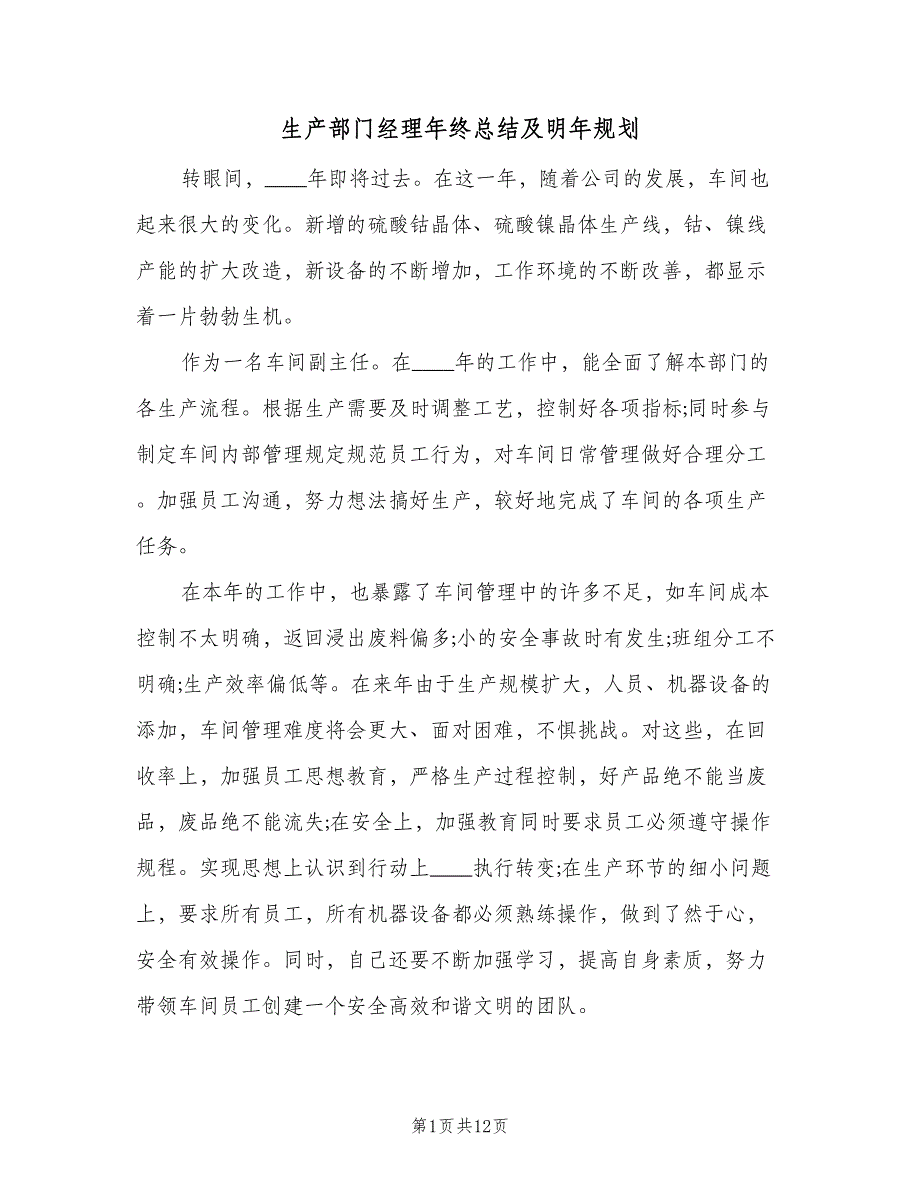 生产部门经理年终总结及明年规划
转眼间，____年即将过去。在这一年，随着公司的发展，车间也
起来很大的变化。新增的硫酸钴晶体、硫酸镍晶体生产线，钴、镍线
产能的扩大改造，新设备的不断增加，工作环境的不断改善，都显示
着一片勃勃生机。
作为一名车间副主任。在____年的工作中，能全面了解本部门的
各生产流程。根据生产需要及时调整工艺，控制好各项指标;同时参与
制定车间内部管理规定规范员工行为，对车间日常管理做好合理分工
。加强员工沟通，努力想法搞好生产，较好地完成了车间的各项生产
任务。
在本年的工作中，也暴露了车间管理中的许多不足，如车间成本
控制不太明确，返回浸出废料偏多;小的安全事故时有发生;班组分工不
明确;生产效率偏低等。在来年由于生产规模扩大，人员、机器设备的
添加，车间管理难度将会更大、面对困难，不惧挑战。对这些，在回
收率上，加强员工思想教育，严格生产过程控制，好产品绝不能当废
品，废品绝不能流失;在安全上，加强教育同时要求员工必须遵守操作
规程。实现思想上认识到行动上____执行转变;在生产环节的细小问题
上，要求所有员工，所有机器设备都必须熟练操作，做到了然于心，
安全有效操作。同时，自己还要不断加强学习，提高自身素质，努力
带领车间员工创建一个安全高效和谐文明的团队。
第1页共12页